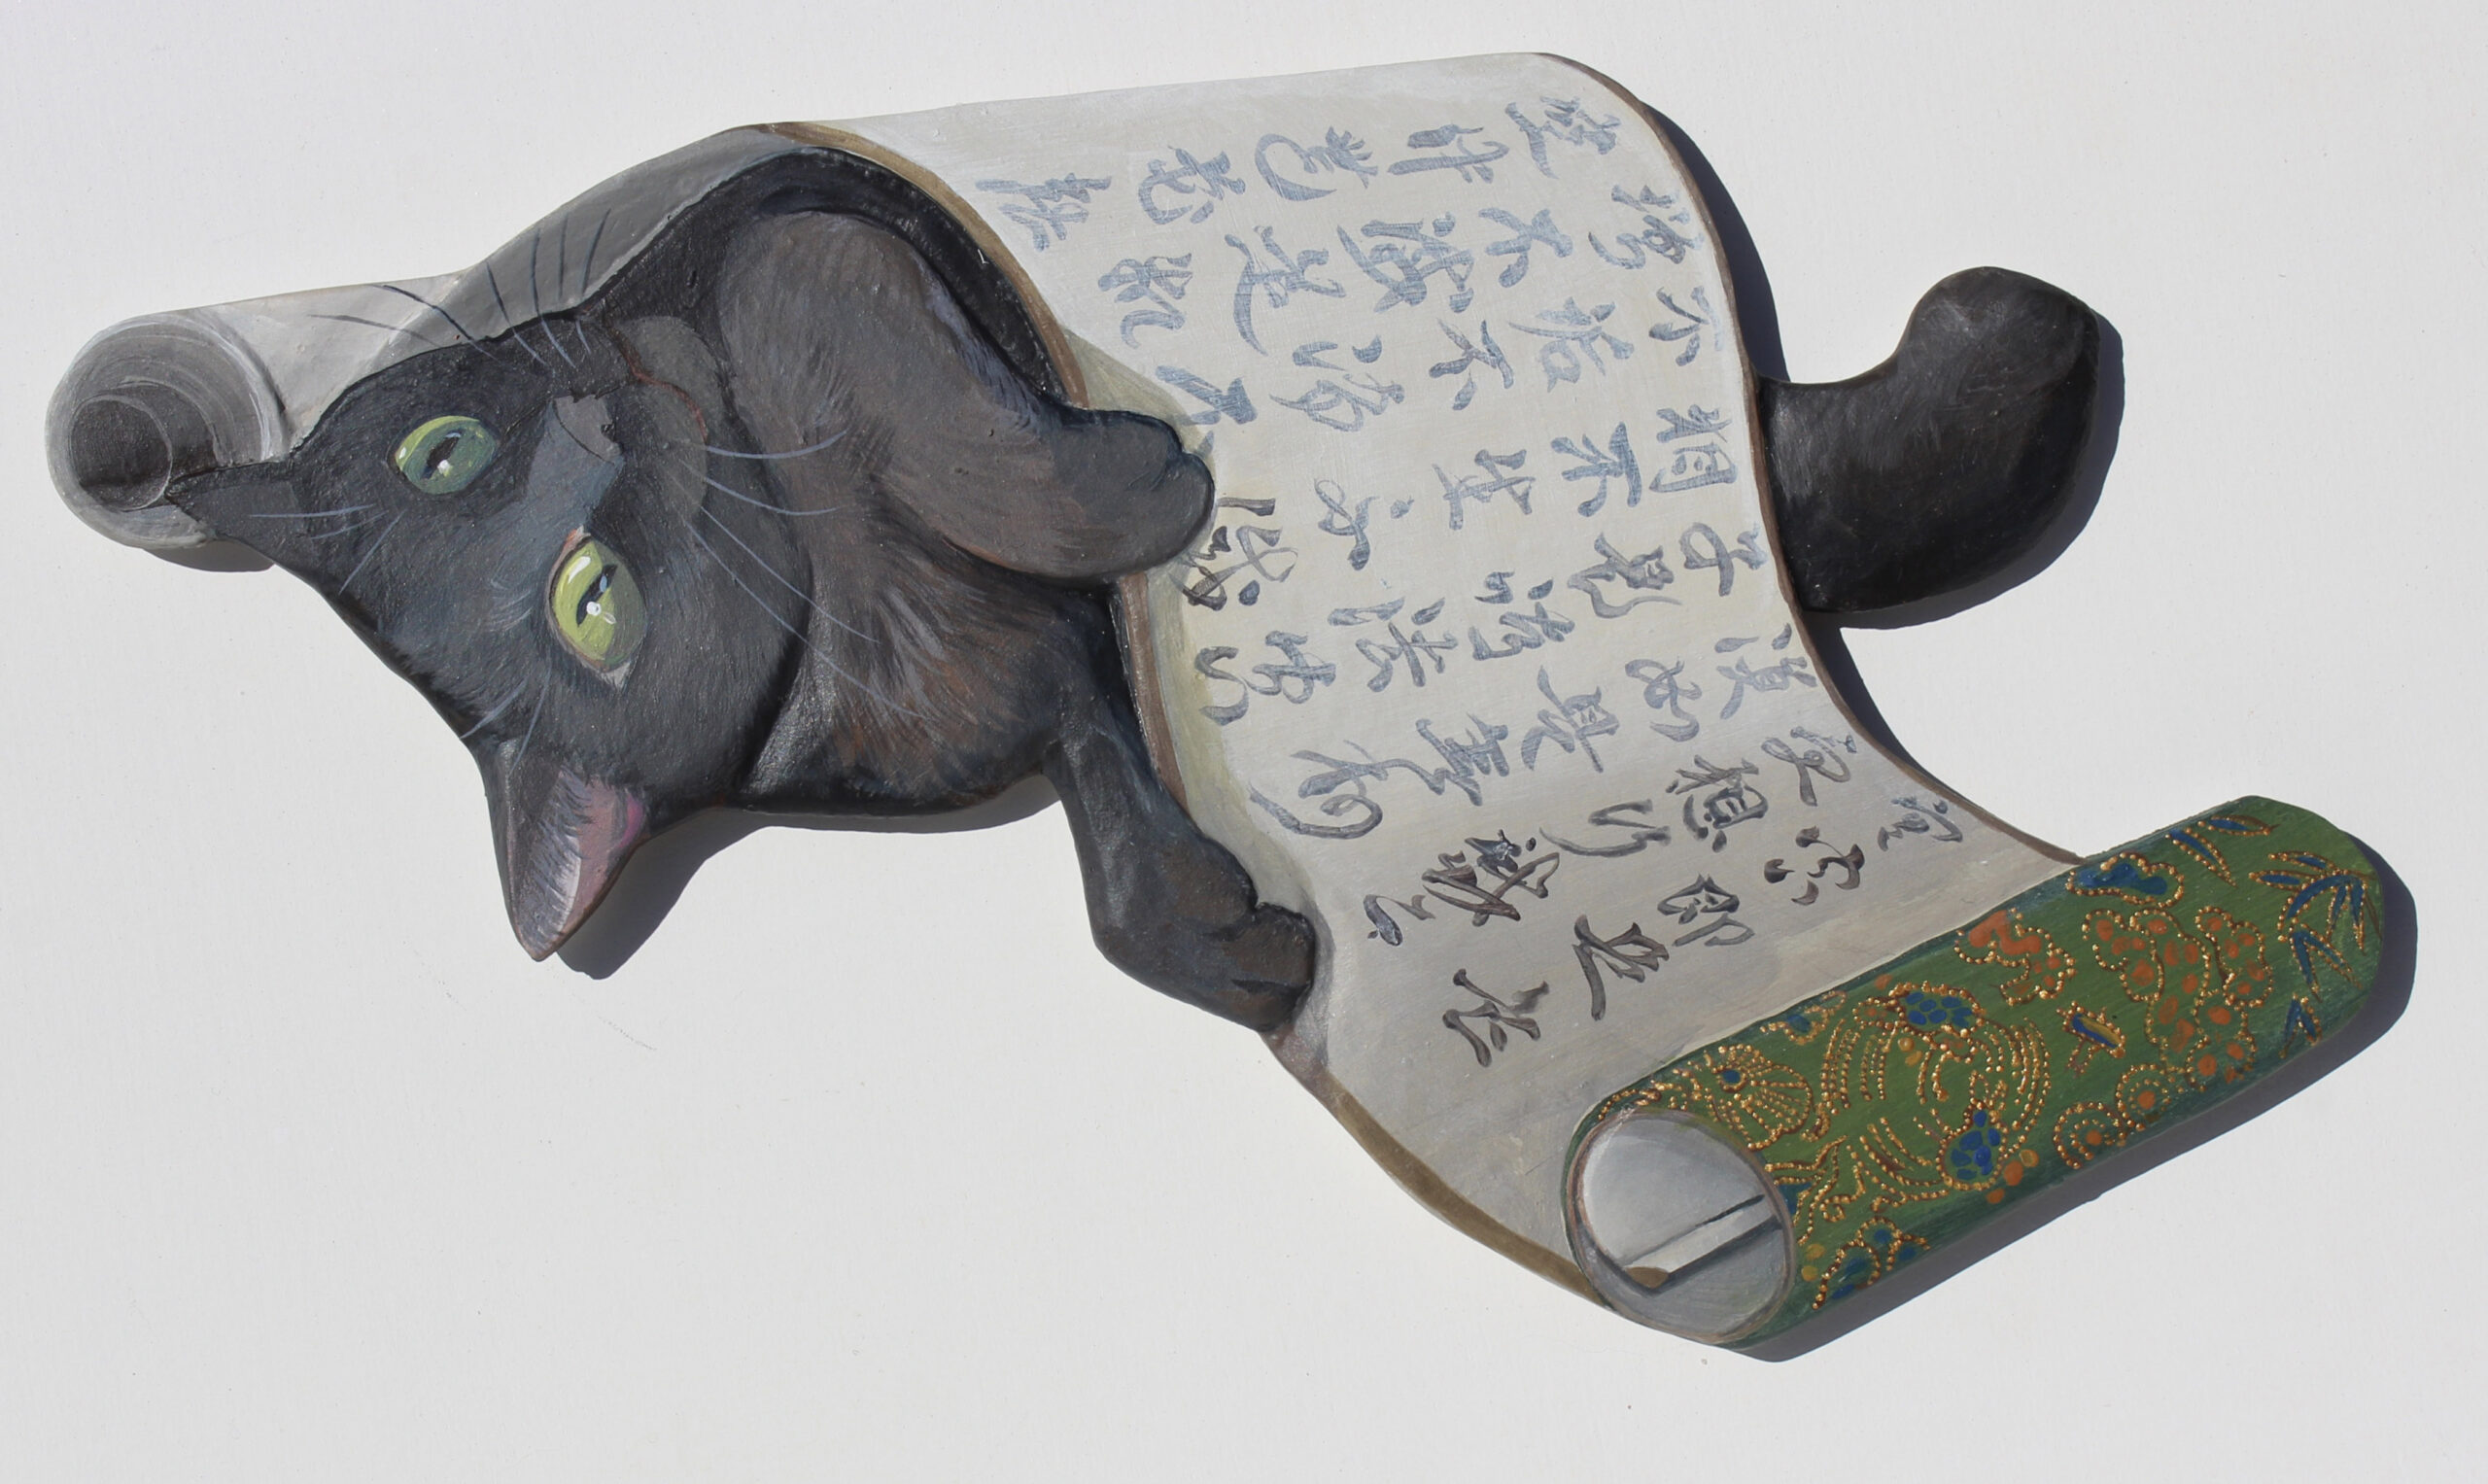 空空即是色
受想行識亦
復如是舍利
子是諸法空
相不生不滅
不垢不淨不
增不減是故
空中無色無